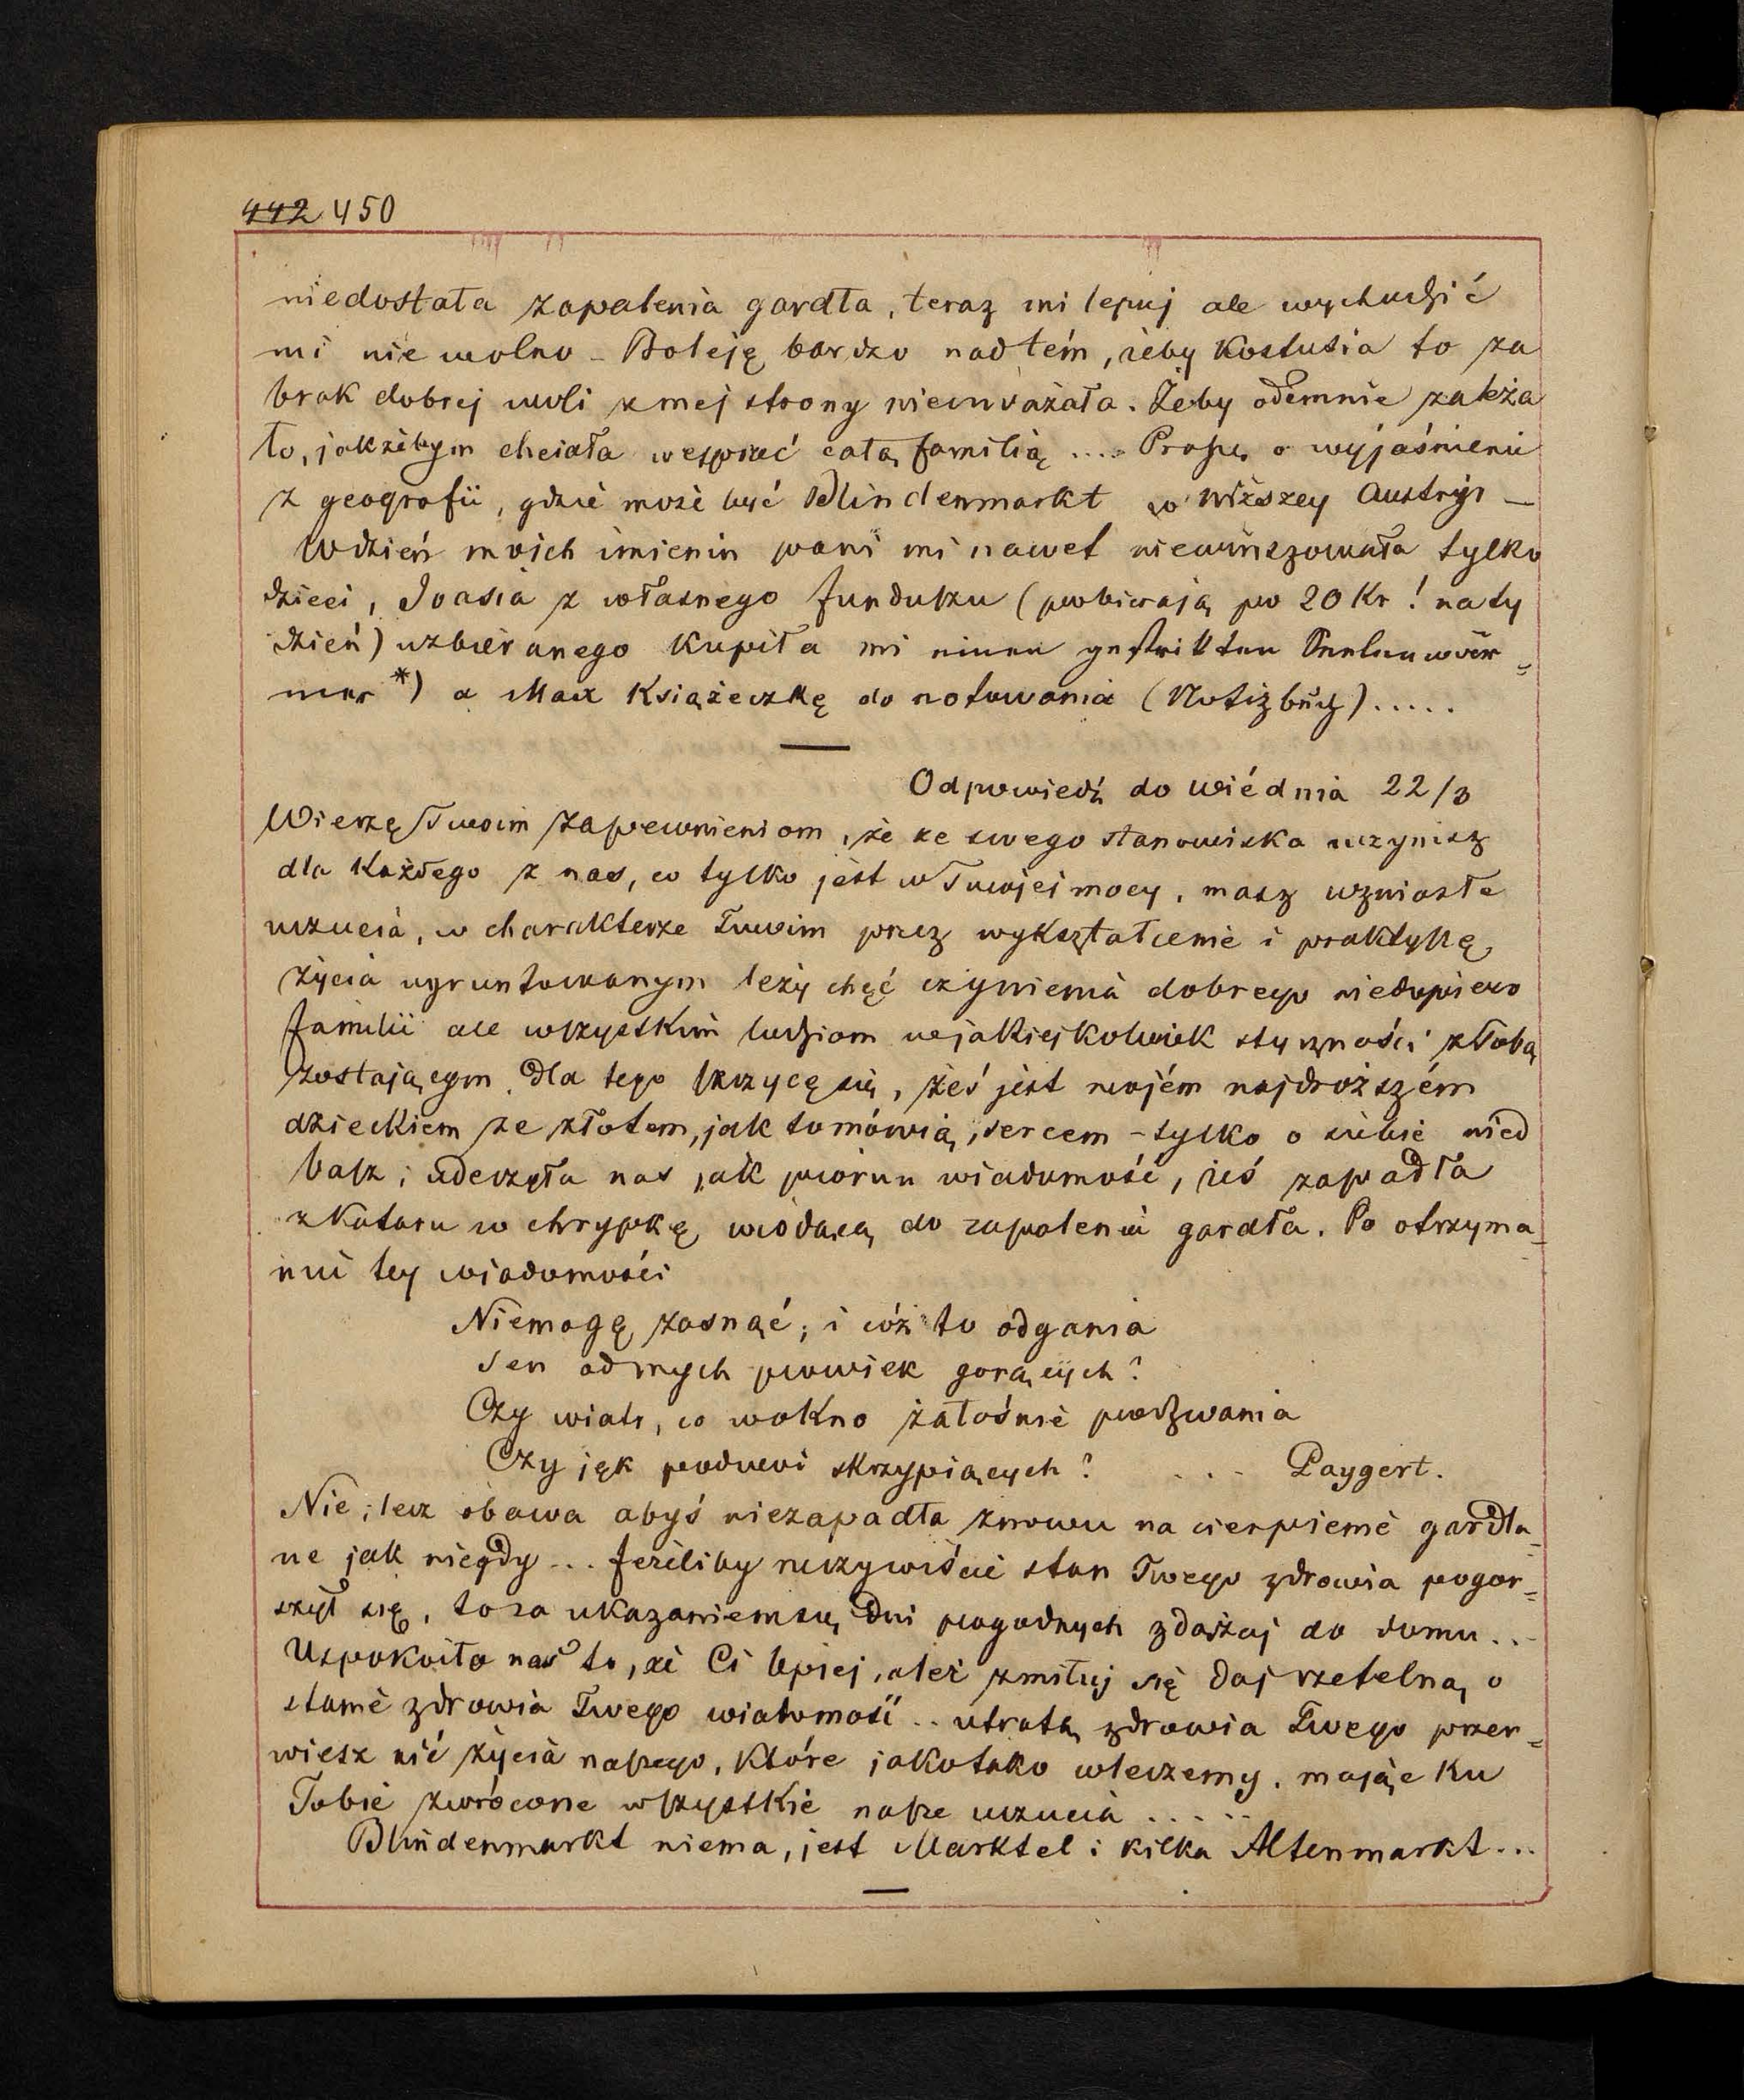 442 450
niedostała zapalenia gardła, teraz mi lepiej ale wychodzić
mi nie wolno – Boleję bardzo nad tém, żeby Kostusia to za
brak dobrej woli z mej strony nieuważała. Żeby odemnie zależa
ło, jakżebym chciała wesprzeć całą familią .... Proszę o wyjaśnienie
z geografii, gdzie może być Blindenmarkt w Niższey Austryi –
W dzień moich imienin pani mi nawet niewinszowała tylko
dzieci, Joasia z własnego funduszu (pobierają po 20 Kr! na ty
dzień) uzbieranego kupiła mi einen gestrickten Seelenwär=
mer *) a Max Książeczkę do notowania (Notizbuch).....
Odpowiedź do Wiédnia 22/3
Wierzę Twoim zapewnieniom, że ze swego stanowiska uczynisz
dla każdego z nas, co tylko jest w Twojej mocy, masz wzniosłe
uczucia, w charakterze Twoim przez wykształcenie i praktykę
życia ugruntowanym leży chęć czynienia dobrego niedopiero
familii ale wszystkim ludziom w jakiejkolwiek styczności z Tobą
zostającym. Dla tego szczycę się, żeś jest mojém najdroższém
dzieckiem ze złotem, jak to mówią, sercem – tylko o siebie nied
basz; uderzyła nas jak piorun wiadomość, żeś zapadła
z kataru w chrypkę wiodącą do zapalenia gardła. Po otrzyma=
niu tey wiadomości
Niemogę zasnąć; i cóż to odgania
Sen od mych powiek gorących?
Czy wiatr, co w okno żałośnie podzwania
Czy jęk podwoi skrzypiących? ... Paygert.
Nie; lecz obawa abyś niezapadła znowu na cierpienie gardla=
ne jak niegdy... Jeżeliby rzeczywiście stan Twego zdrowia pogor=
szył się, to za ukazaniem się dni pogodnych zdążaj do domu...
Uspokoiło nas to, że Ci lepiej, ależ zmiłuj się daj rzetelną o
stanie zdrowia Twego wiadomość.. utratą zdrowia Twego przer=
wiesz nić życia naszego, które jako tako wleczemy, mając ku
Tobie zwrócone wszystkie nasze uczucia .....
Blindenmarkt niema, jest Marktel i kilka Altenmarkt...